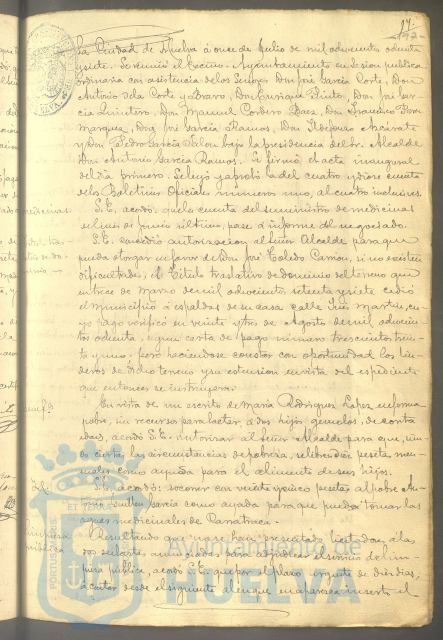 17.
172
la Ciudad de Huelva á once de Julio de mil ochocientos ochenta
y siete. Se reunió el Excmo. Ayuntamiento en sesion pública
ordinaria con asistencia de los Señores Don José García Corte, Don
Antonio de la Corte y Bravo, Don Enrique Pinto, Don José Gar-
cia Quintero, Don Manuel Cordero Baez, Don Francisco
Marquez, Don José García Ramos, Don Ildefonso Azcárate
y Don Pedro García bajo la presidencia del Sr. Alcalde
Don Antonio García Ramos. Se firmó el acta inaugural
del dia primero. Se leyó y aprobó la del cuatro y dióse cuenta
de los Boletines Oficiales números uno al cuatro inclusives.
S.E. acordó: que la cuenta del suministro de medicinas
en de Junio último, pase á informe del negociado.
S.E. concedió autorizacion al Señor Alcalde para que
pueda otorgar en favor de Don José Toledo si no existen
dificultades, el Título traslativo de dominio del terreno que
en trece de Marzo de mil ochocientos setenta y siete cedió
el Municipio á espaldas de su casa calle San Martin, cu-
yo pago verificó en veinte y tres de Agosto de mil ochocien-
tos ochenta, segun carta de pago número trescientos trein-
ta y uno; pero haciéndose constar con oportunidad los lin-
deros de dicho terreno y su estension en vista del espediente
que entonces se instruyera.
En vista de un escrito de María Rodriguez Lopez enferma
pobre, un recurso para lactar á dos hijos gemelos, de corta
edad, acordó S.E. autorizar al Señor Alcalde para que, sien-
do ciertas las circunstancias de pobreza, se libren diez pesetas men-
suales como ayuda para el alimento de sus hijos.
S.E. acordó: socorrer con veinte y cinco pesetas al pobre
García como ayuda para que pueda tomar las
aguas medicinales de
Resultando que no se han presentado licitadores á la
subasta anunciada para adjudicar el servicio de lim-
pieza pública, acordó S.E. que por el plazo urgente de diez dias,
á contar desde el siguiente al en que aparezca inserto el
medicinas
Limpieza
pública
PORTUS MARIS
ET TERRAE CUSTODIA
Ayuntamiento de
HUELVA